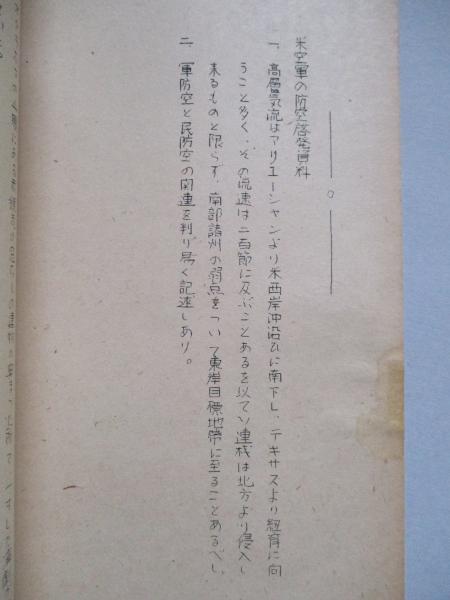 米空軍の防空啓発資料
一、高層気流はアリューシャンより米西岸沖沿ひに南下し、テキサスより紐育に向
うこと多く、その流速は二百節に及ぶことあるを以てソ連機は北方より侵入し
来るものと限らず、南部諸州の弱点をついて東岸目標地帯に至ることあるべし。
二、軍防空と民防空の関連を判り易く記述しあり。